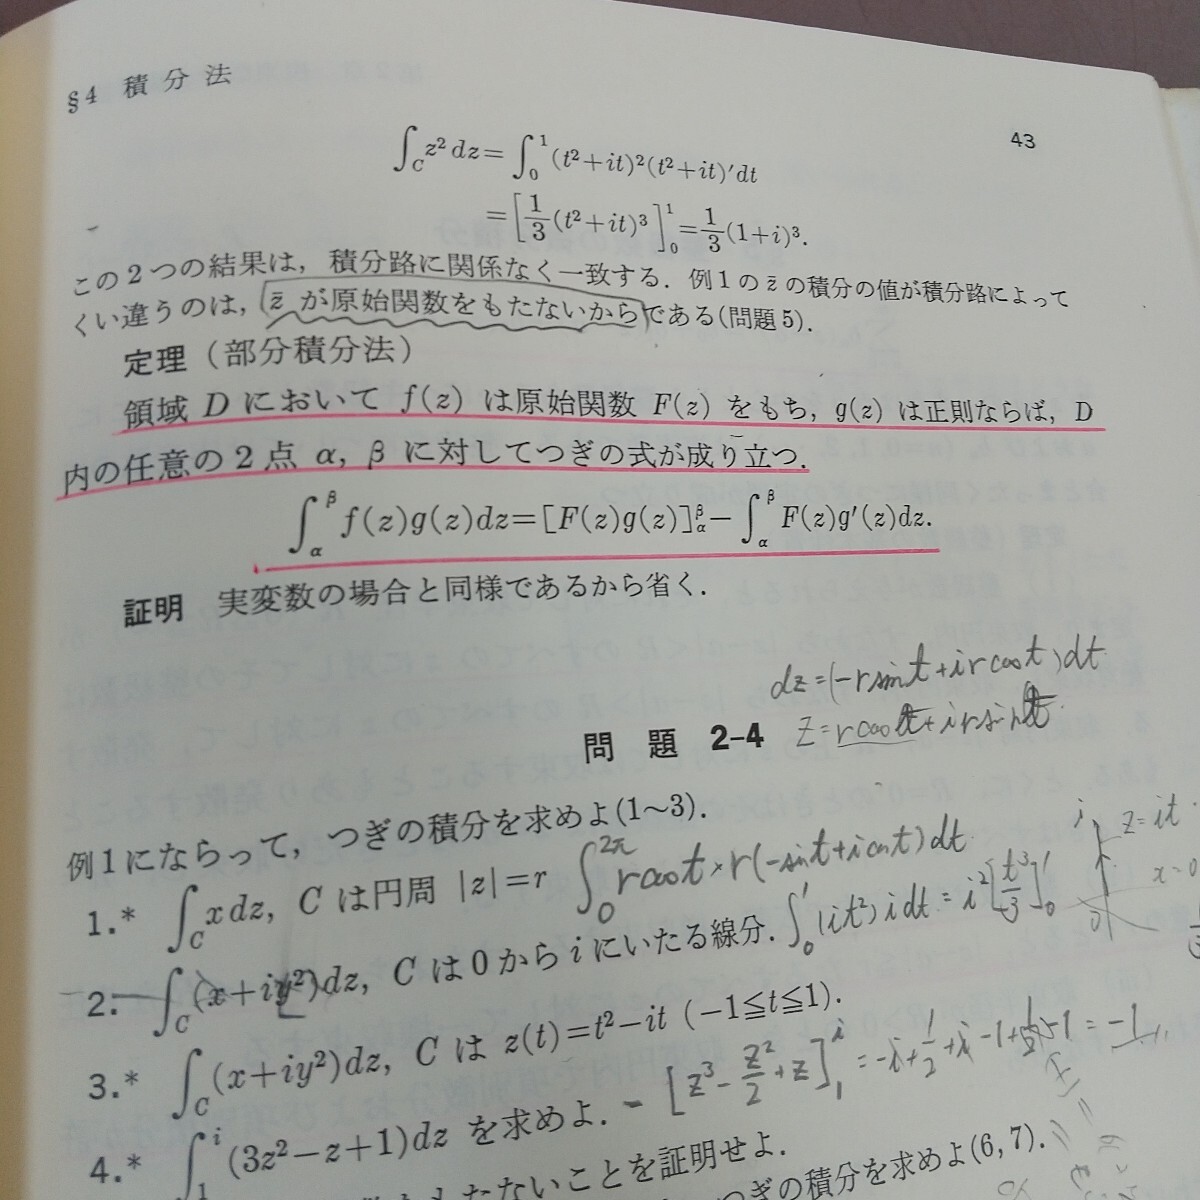 §4 積分法
43
∫_C z² dz = ∫₀¹ (t²+it)²(t²+it)′dt
= [1/3 (t²+it)³]₀¹ = 1/3 (1+i)³.
この2つの結果は，積分路に関係なく一致する．例1の z̄ の積分の値が積分路によって
くい違うのは，z̄ が原始関数をもたないからである(問題5)．
定理（部分積分法）
領域 D において f(z) は原始関数 F(z) をもち，g(z) は正則ならば，D
内の任意の2点 α, β に対してつぎの式が成り立つ．
∫_α^β f(z)g(z)dz=[F(z)g(z)]_α^β−∫_α^β F(z)g′(z)dz.
証明 実変数の場合と同様であるから省く．
dz=(-rsint+ircost)dt
問題 2-4 z=rcost+irsint
例1にならって，つぎの積分を求めよ(1～3)．
1.* ∫_C x dz, C は円周 |z|=r ∫₀^{2π} rcost×r(-sint+icost)dt
2. ∫_C (x+iy²)dz, C は0から i にいたる線分. ∫₀¹(it²)idt=i²[t³/3]₀¹
i z=it
0
3.* ∫_C (x+iy²)dz, C は z(t)=t²−it (−1≦t≦1).
4.* ∫₁^i (3z²−z+1)dz を求めよ． [z³-z²/2+z]₁^i =-i+1/2+i-1+1/2-1=-1
もたないことを証明せよ．
つぎの積分を求めよ(6, 7)．